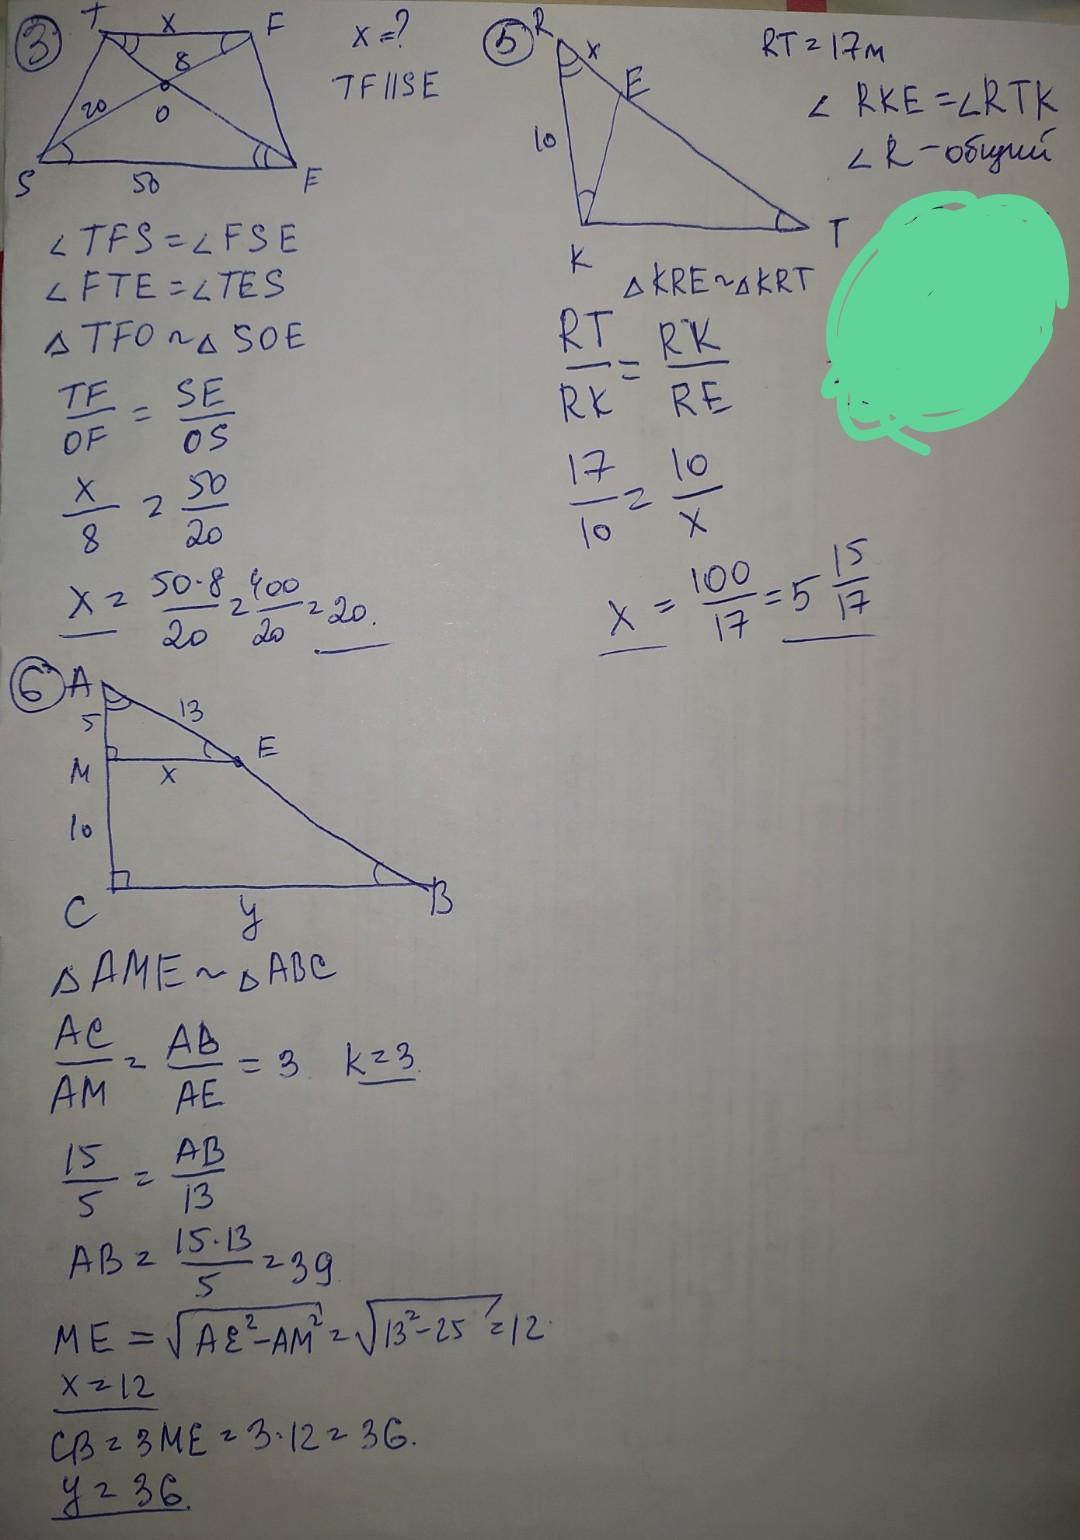 3
T x F
8
20 O
S 50 E
x = ?
TF || SE
∠TFS = ∠FSE
∠FTE = ∠TES
△TFO ~ △SOE
TF/OF = SE/OS
x/8 = 50/20
x = 50·8/20 = 400/20 = 20.
5
R x
E
10
K T
RT = 17м
∠RKE = ∠RTK
∠R - общий
△KRE ~ △KRT
RT/RK = RK/RE
17/10 = 10/x
x = 100/17 = 5 15/17
6
A
5 13
M x E
10
C y B
△AME ~ △ABC
AC/AM = AB/AE = 3 k = 3
15/5 = AB/13
AB = 15·13/5 = 39
ME = √AE²-AM² = √13²-25 = 12
x = 12
CB = 3ME = 3·12 = 36.
y = 36.